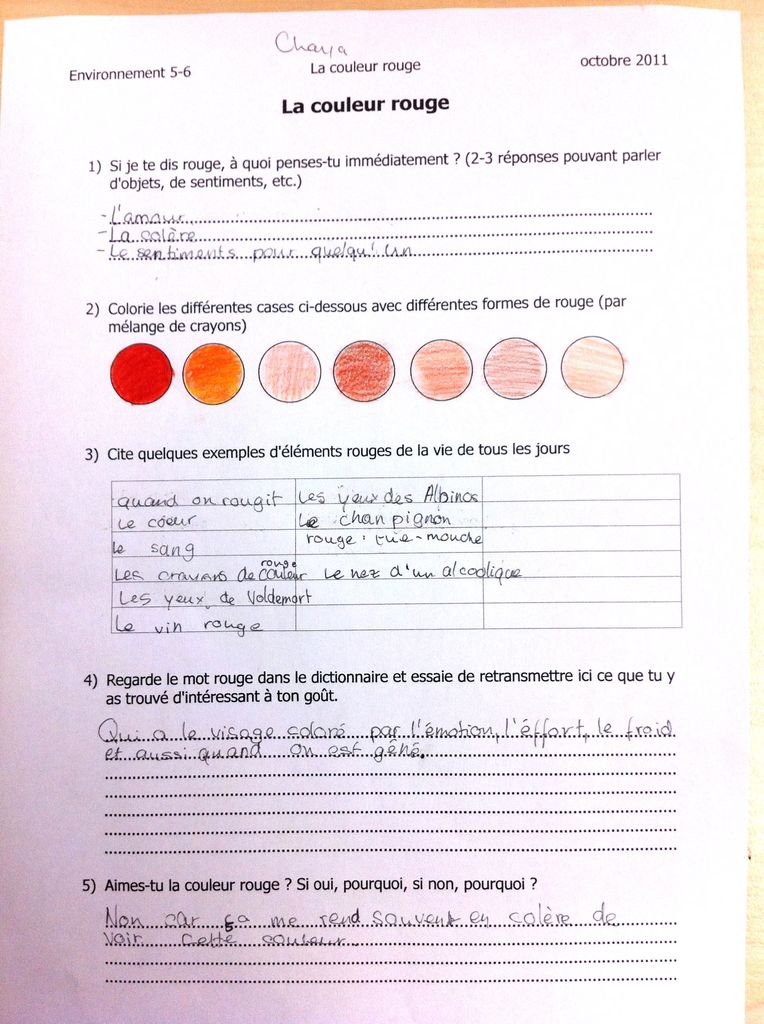 Charya
Environnement 5-6 La couleur rouge octobre 2011
La couleur rouge
1) Si je te dis rouge, à quoi penses-tu immédiatement ? (2-3 réponses pouvant parler
d'objets, de sentiments, etc.)
- L'amour
- La colère
- Le sentiments pour quelqu'un
2) Colorie les différentes cases ci-dessous avec différentes formes de rouge (par
mélange de crayons)
3) Cite quelques exemples d'éléments rouges de la vie de tous les jours
quand on rougit Les yeux des Albinos
Le coeur Le chanpignon
rouge : tue-mouche
le sang
rouge
Les crayons de couleur Le nez d'un alcoolique
Les yeux de Voldemort
Le vin rouge
4) Regarde le mot rouge dans le dictionnaire et essaie de retransmettre ici ce que tu y
as trouvé d'intéressant à ton goût.
Qui a le visage coloré par l'émotion, l'éffort, le froid
et aussi quand on est gêné.
5) Aimes-tu la couleur rouge ? Si oui, pourquoi, si non, pourquoi ?
Non car ça me rend souvent en colère de
voir cette couleur